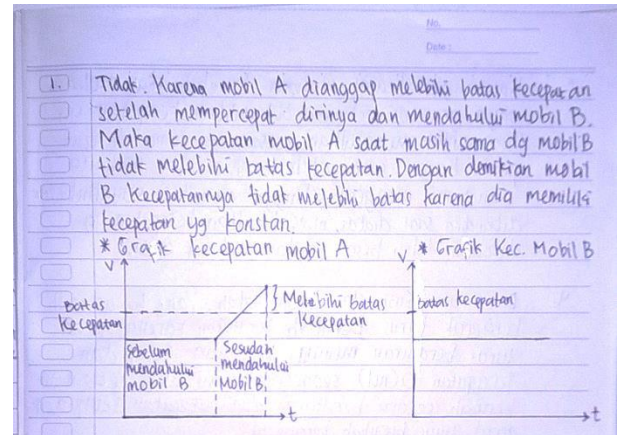 No.
Date :
1. Tidak. Karena mobil A dianggap melebihi batas kecepatan
setelah mempercepat dirinya dan mendahului mobil B.
Maka kecepatan mobil A saat masih sama dg mobil B
tidak melebihi batas kecepatan. Dengan demikian mobil
B kecepatannya tidak melebihi batas karena dia memiliki
kecepatan yg konstan.
* Grafik kecepatan mobil A
V
Batas
kecepatan
} Melebihi batas
kecepatan
Sebelum
mendahului
mobil B
Sesudah
mendahului
Mobil B
t
* Grafik Kec. Mobil B
V
batas kecepatan
t